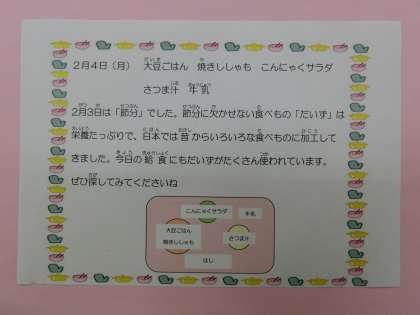 2月4日（月）　大豆ごはん　焼きししゃも　こんにゃくサラダ
さつま汁　牛乳
2月3日は「節分」でした。節分に欠かせない食べもの「だいず」は
栄養たっぷりで、日本では昔からいろいろな食べものに加工して
きました。今日の給食にもだいずがたくさん使われています。
ぜひ探してみてくださいね
こんにゃくサラダ
牛乳
大豆ごはん
焼きししゃも
さつま汁
はし